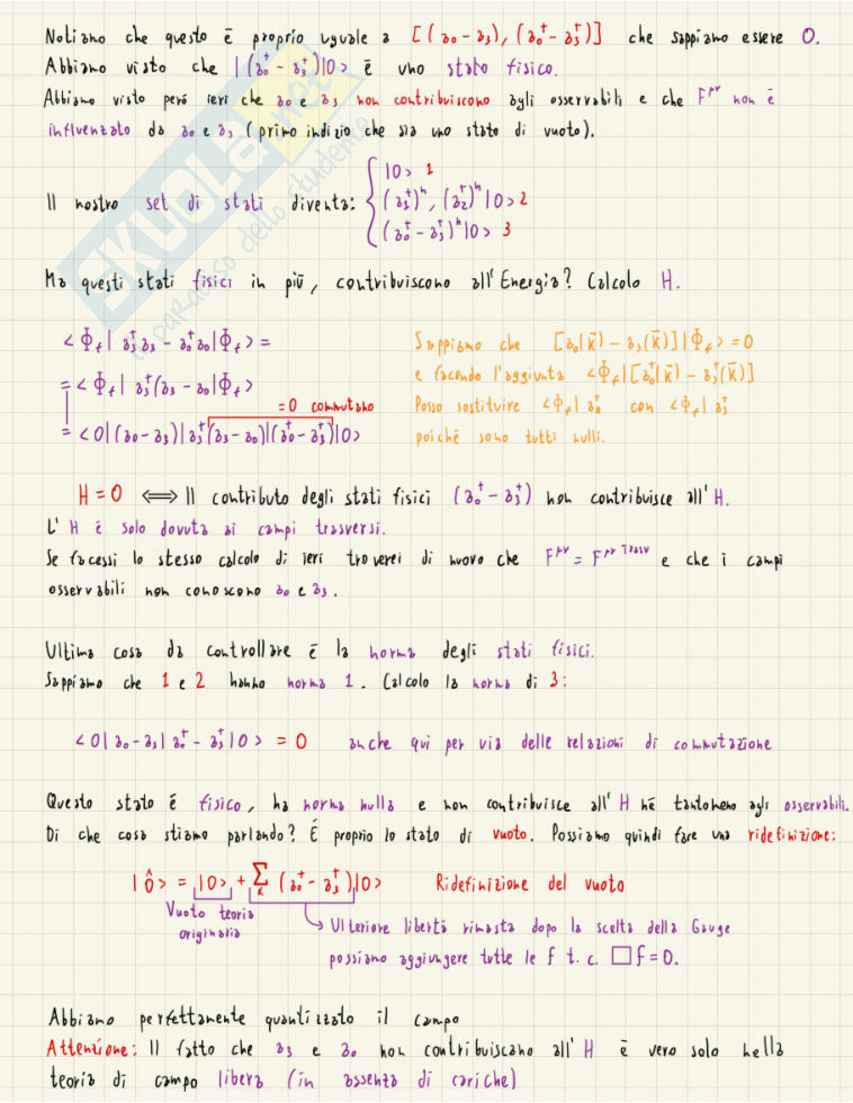 Notiamo che questo è proprio uguale a [(a₀-a₃), (a₀†-a₃†)] che sappiamo essere 0.
Abbiamo visto che |(a₀†-a₃†)|0> è uno stato fisico.
Abbiamo visto però ieri che a₀ e a₃ non contribuiscono agli osservabili e che F^μν non è
influenzato da a₀ e a₃ (primo indizio che sia uno stato di vuoto).
|0> 1
Il nostro set di stati diventa: { (a₁†)ⁿ, (a₂†)ⁿ|0> 2
(a₀†-a₃†)ⁿ|0> 3
Ma questi stati fisici in più, contribuiscono all'Energia? Calcolo H.
<Φf| a₃†a₃ - a₀†a₀|Φf> =
= <Φf| a₃†(a₃ - a₀|Φf>
=0 commutano
= <0|(a₀-a₃)|a₃†(a₃-a₀)|(a₀†-a₃†)|0>
Sappiamo che [a₀(k̄) - a₃(k̄)]|Φf> = 0
e facendo l'aggiunta <Φf|[a₀†(k̄) - a₃†(k̄)]
Posso sostituire <Φf| a₀† con <Φf| a₃†
poiché sono tutti nulli.
H = 0 ⟺ Il contributo degli stati fisici (a₀†-a₃†) non contribuisce all'H.
L'H è solo dovuta ai campi trasversi.
Se facessi lo stesso calcolo di ieri troverei di nuovo che F^μν = F^μν Trasv e che i campi
osservabili non conoscono a₀ e a₃.
Ultima cosa da controllare è la norma degli stati fisici.
Sappiamo che 1 e 2 hanno norma 1. Calcolo la norma di 3:
<0| a₀-a₃| a₀†-a₃†|0> = 0 anche qui per via delle relazioni di commutazione
Questo stato è fisico, ha norma nulla e non contribuisce all'H né tantomeno agli osservabili.
Di che cosa stiamo parlando? É proprio lo stato di vuoto. Possiamo quindi fare una ridefinizione:
|0̂> = |0> + Σ_k (a₀†-a₃†)|0> Ridefinizione del vuoto
Vuoto teoria
originaria
Ulteriore libertà rimasta dopo la scelta della Gauge
possiamo aggiungere tutte le f t.c. □f=0.
Abbiamo perfettamente quantizzato il campo
Attenzione: Il fatto che a₃ e a₀ non contribuiscano all'H è vero solo nella
teoria di campo libera (in assenza di cariche)
SKUOLA.net
il paradiso dello studente